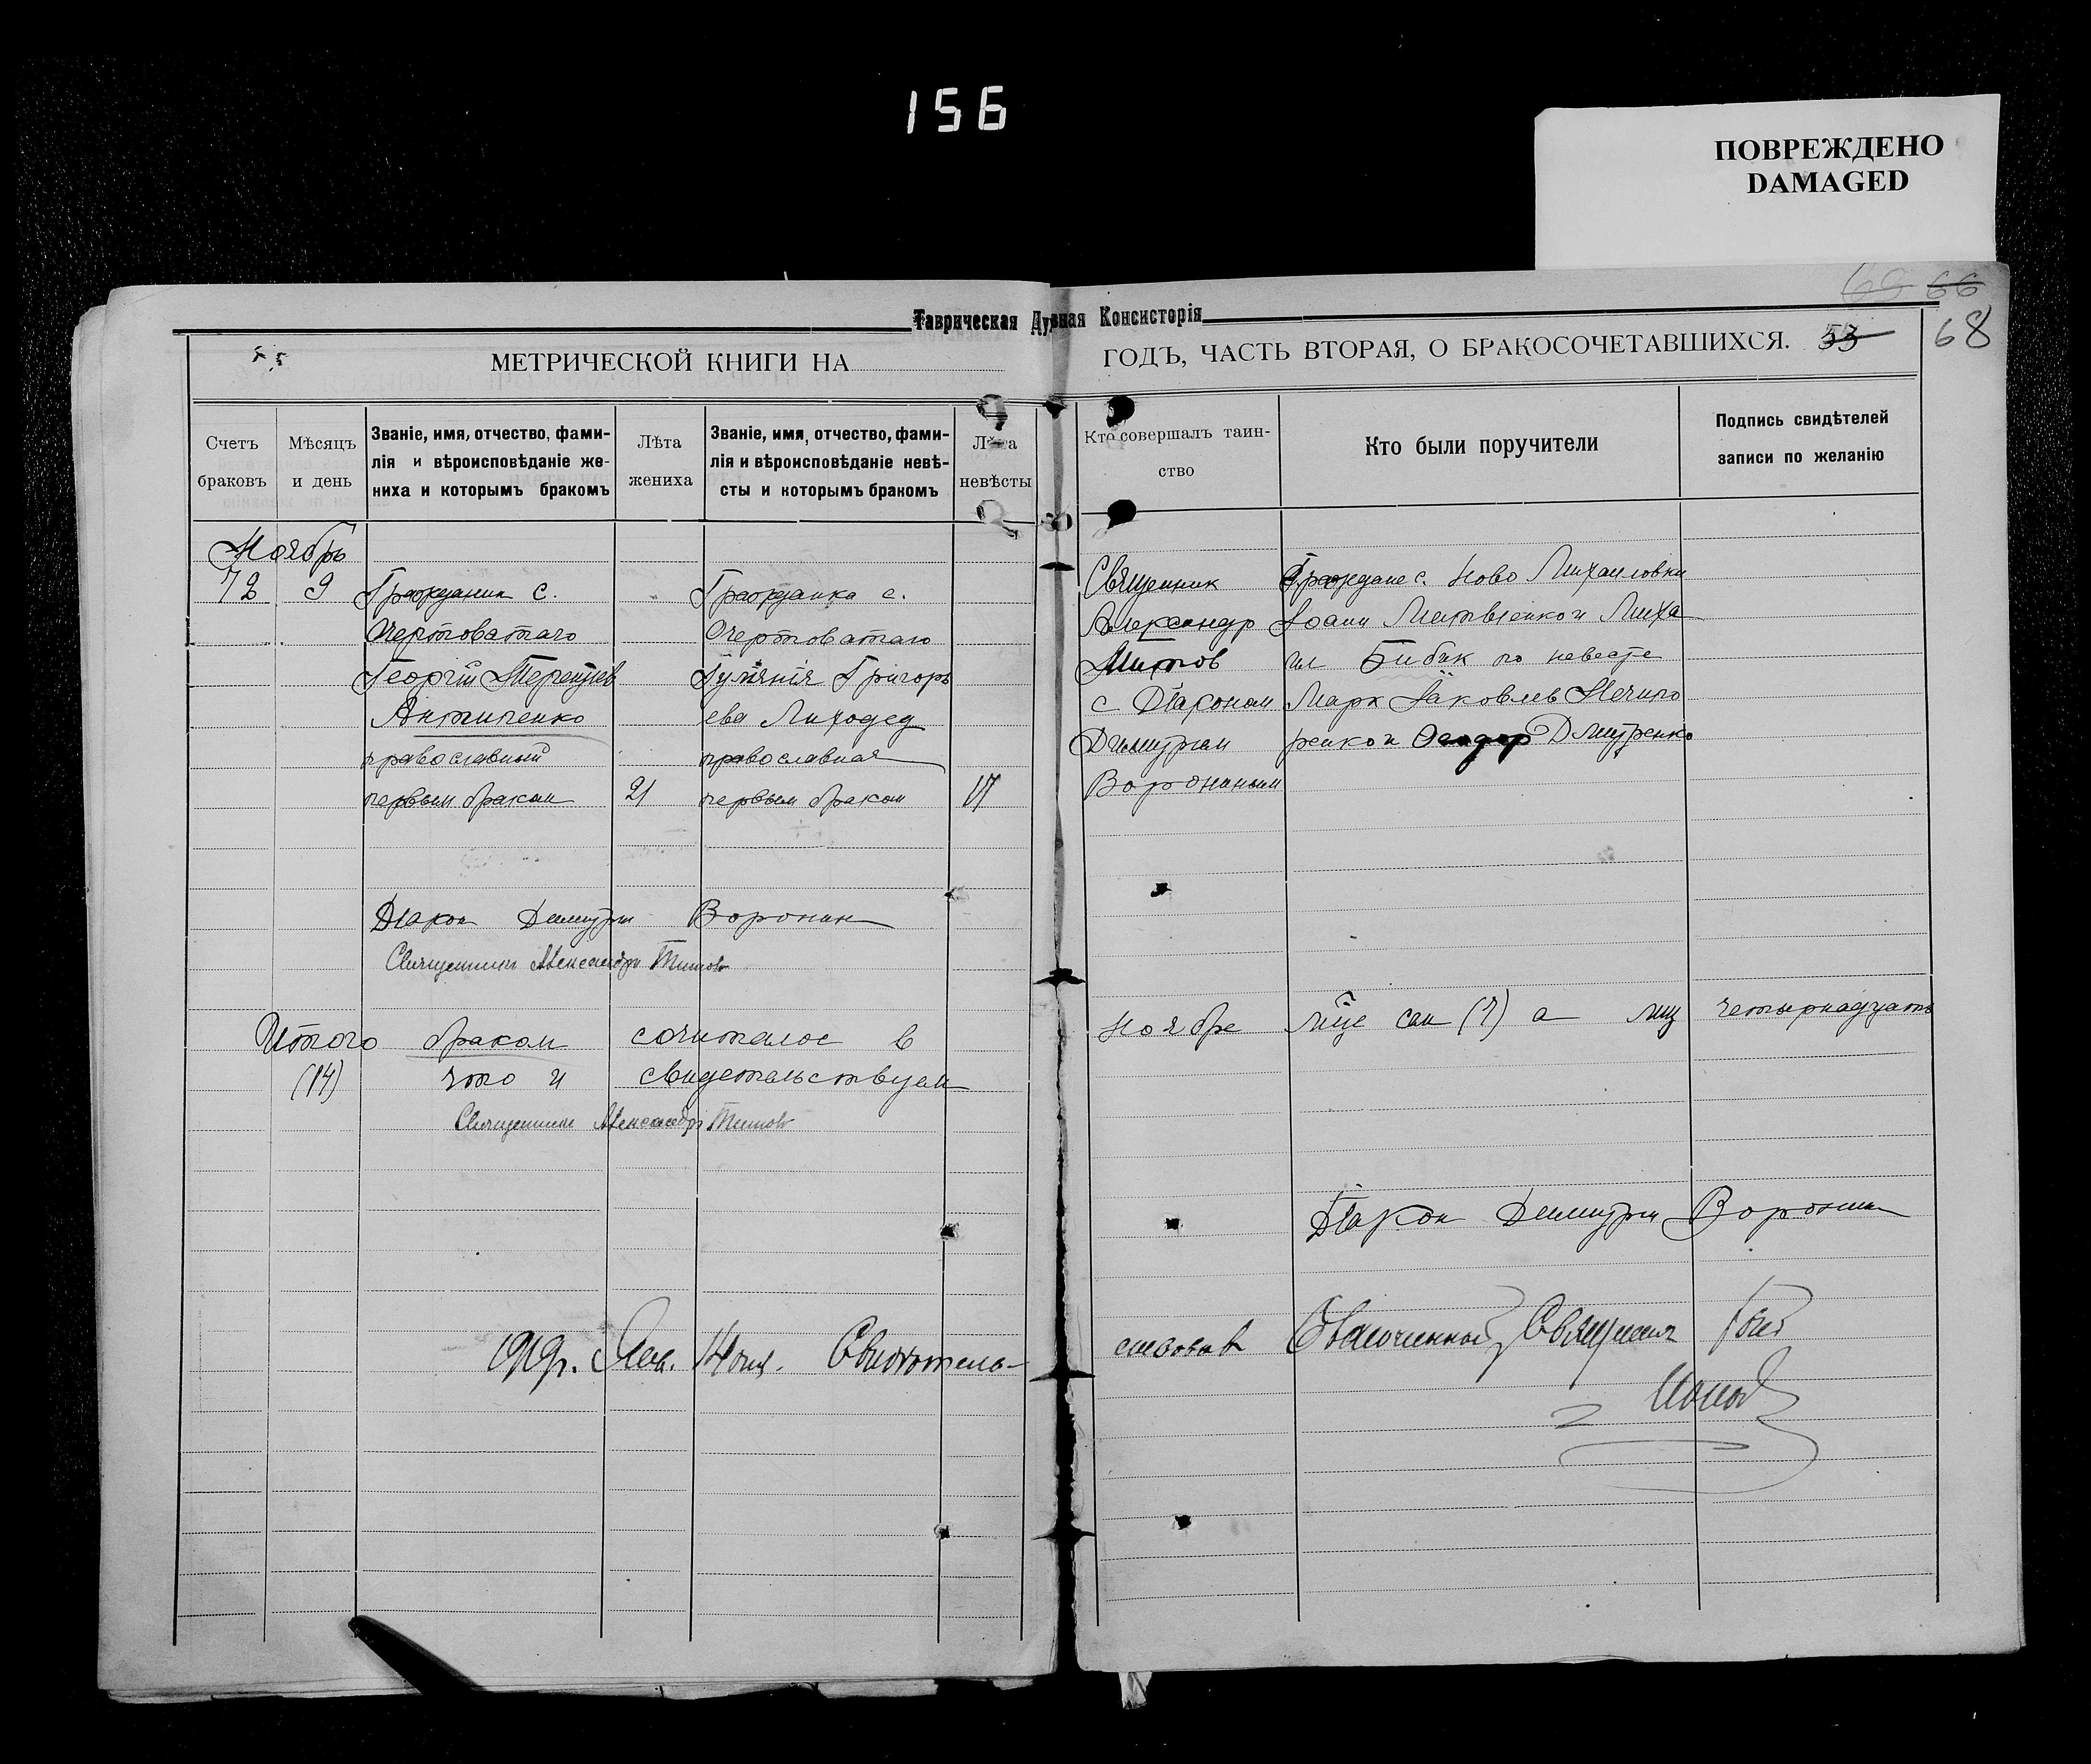 156
ПОВРЕЖДЕНО
DAMAGED
66
68
Таврическая Духовная Консисторія
МЕТРИЧЕСКОЙ КНИГИ НА
ГОДЪ, ЧАСТЬ ВТОРАЯ, О БРАКОСОЧЕТАВШИХСЯ. 53
Счетъ браковъ
Мѣсяцъ и день
Званіе, имя, отчество, фами-
лія и вѣроисповѣданіе же-
ниха и которымъ бракомъ
Лѣта жениха
Званіе, имя, отчество, фами-
лія и вѣроисповѣданіе невѣ-
сты и которымъ бракомъ
Лѣта невѣсты
Кто совершалъ таин-
ство
Кто были поручители
Подпись свидѣтелей
записи по желанію
Ноябрь
72 9
Гражданин с.
Чертоватаго
Георгій Терентіев
Антипенко
православный
первым браком 21
Гражданка с.
Чертоватаго
Григорь
ева Лиходед
православная
первым браком 17
Священник
Александр
Титов
с Діаконом
Димитрием
Ворониным
Граждане с. Ново Михаиловки
Іоанн Матвіенко и Миха
ил Бибик по невесте
Марк Іаковлев Нечипо
ренко и Феодор Дмитренко
Діакон Димитрий Воронин
Священник Александр Титов
Итого браком сочиталос в Ноябре м-це сем (7) а лиц четырнадцать
(14) что и свидетельствуем
Священник Александр Титов
Діакон Димитрий Воронин
1919. Янв. 14 дня. Свидетель-
ствовал Благочинный Священник